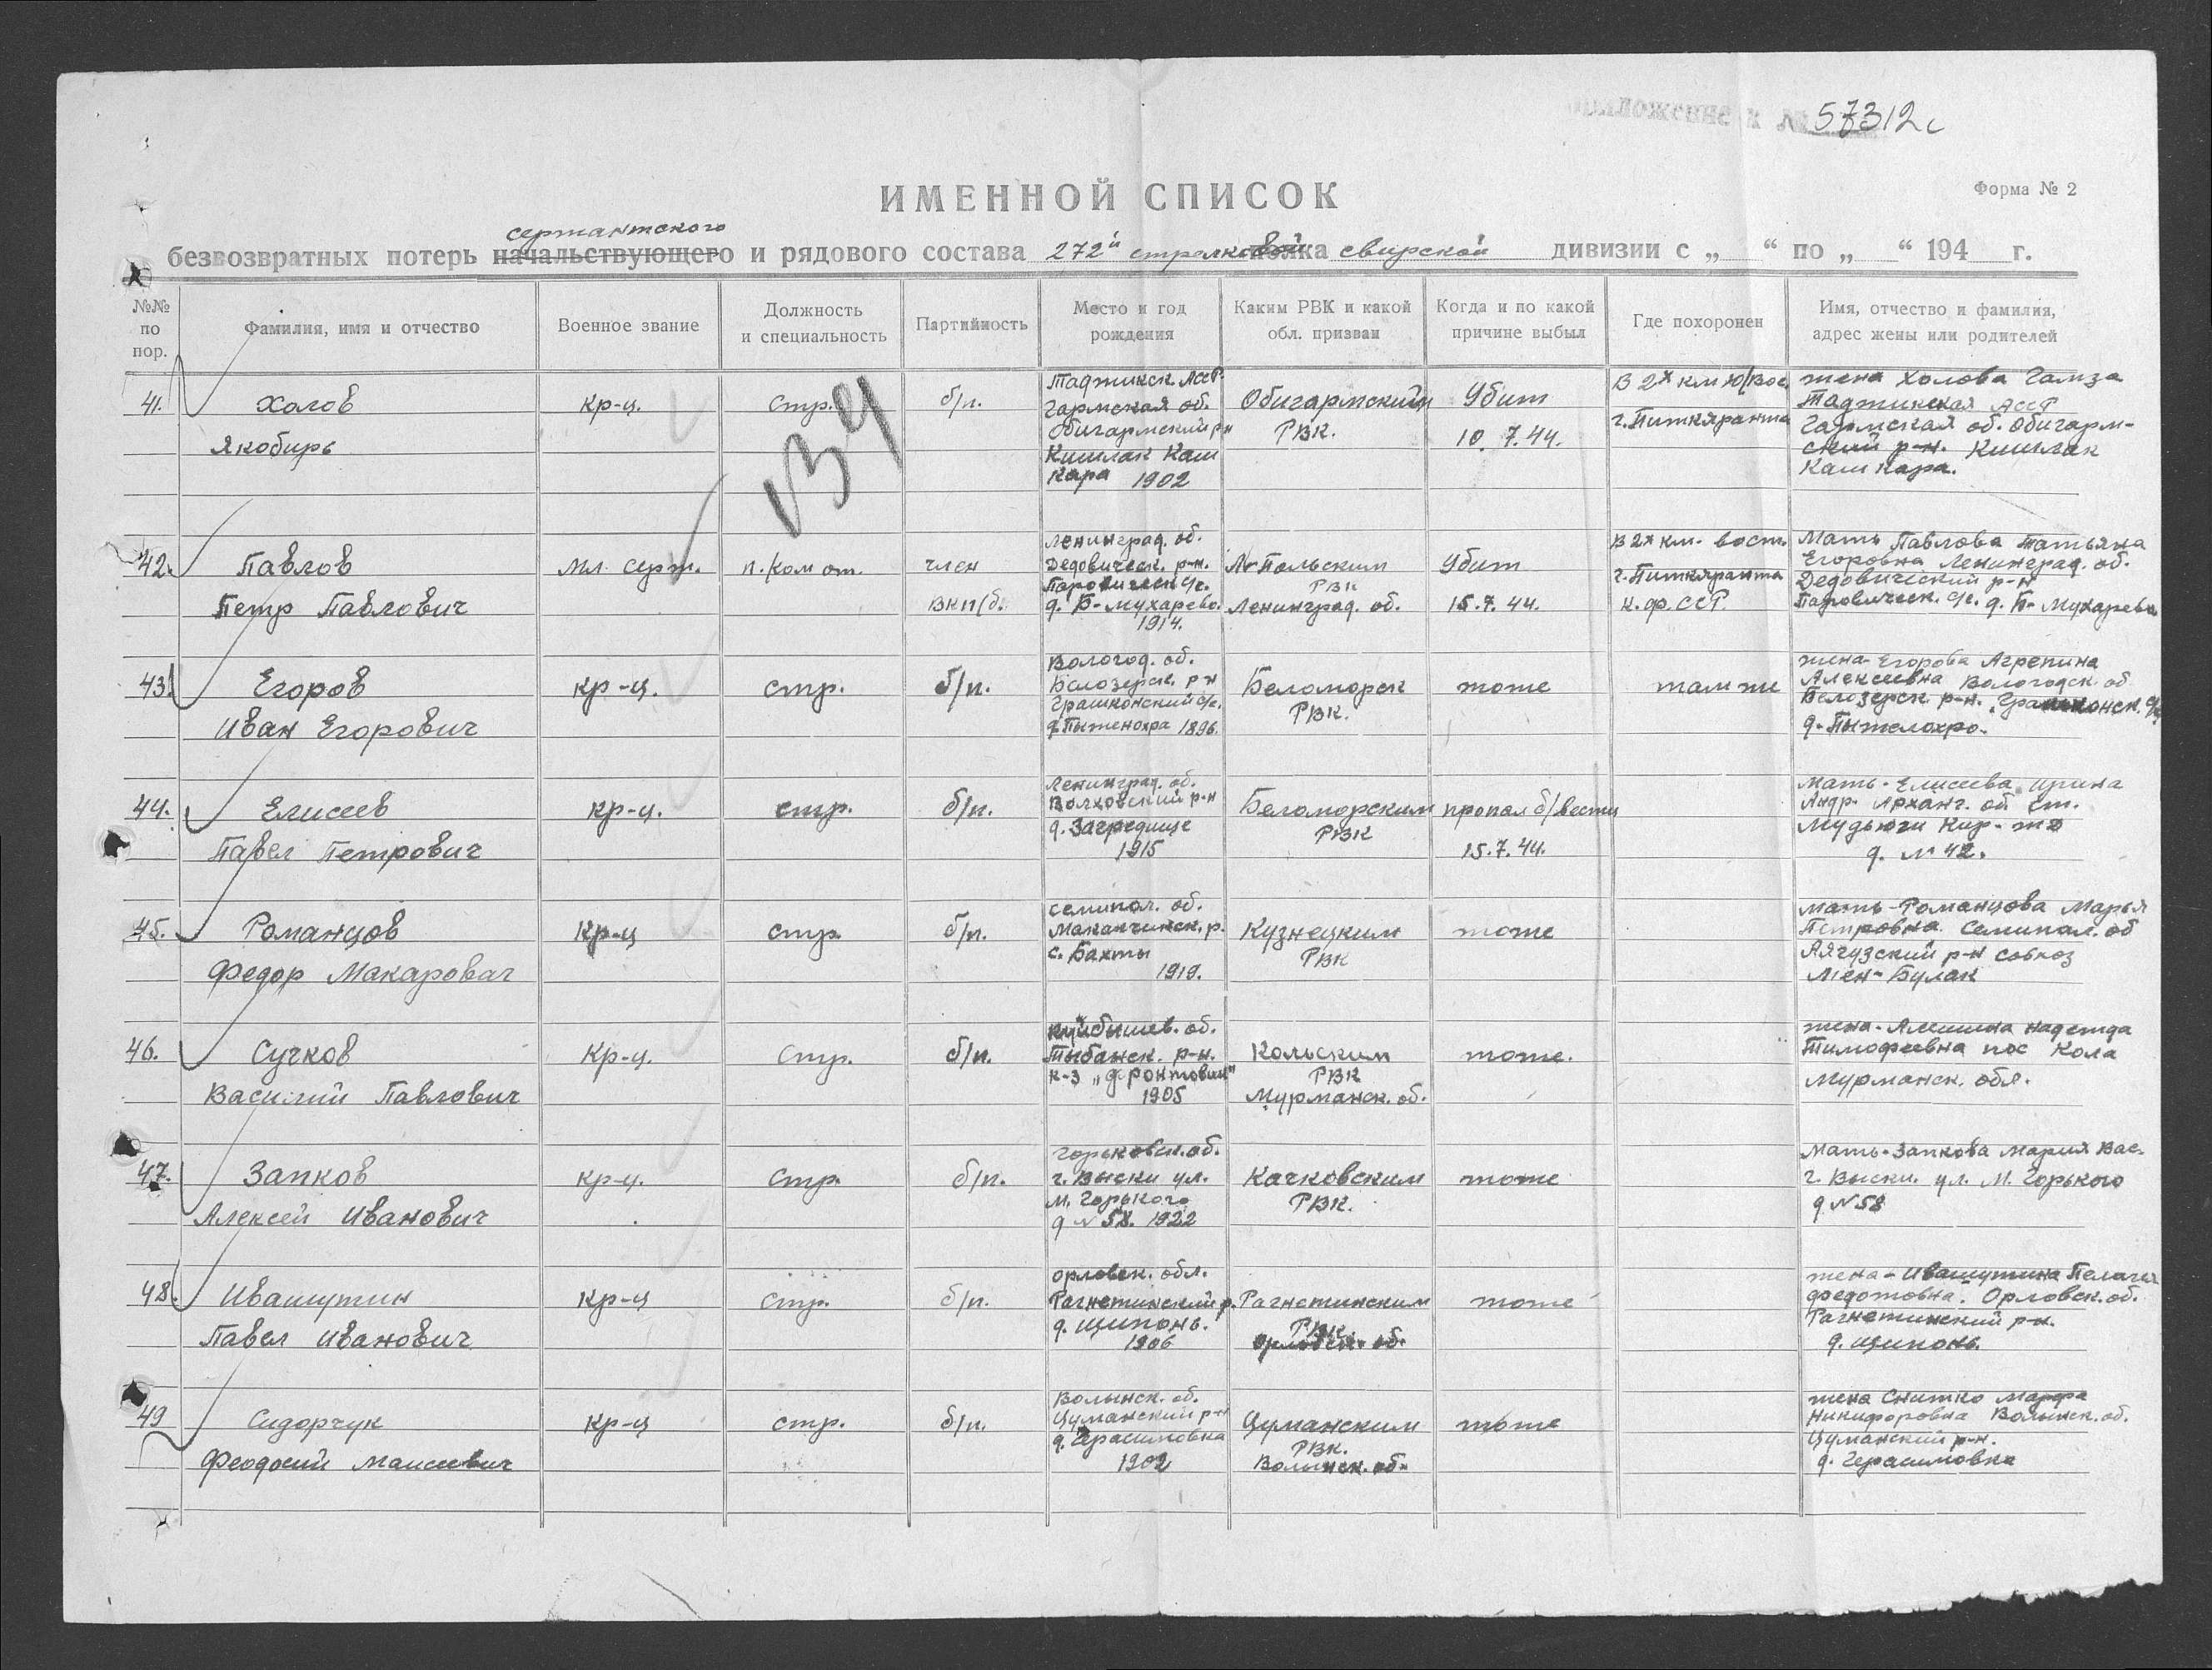 Приложение к № 57312с
Форма № 2
ИМЕННОЙ СПИСОК
сержантского
безвозвратных потерь начальствующего и рядового состава 272й стрелковой свирской дивизии с „ “ по „ “ 194 г.
№№ по пор.
Фамилия, имя и отчество
Военное звание
Должность и специальность
Партийность
Место и год рождения
Каким РВК и какой обл. призван
Когда и по какой причине выбыл
Где похоронен
Имя, отчество и фамилия, адрес жены или родителей
41.
Холов
Якобирь
кр-ц.
стр.
б/п.
Таджикск. АССР.
Гармская об.
Обигармский р-н
Кишлак Каш
Кара 1902
Обигармский
РВК.
Убит
10.7.44.
В 2х км Ю/Вос.
г. Питкяранта
жена Холова Гамза
Таджикская АССР
Гармская об. Обигарм-
ский р-н. Кишлак
Каш Кара.
42.
Павлов
Петр Павлович
мл. серж.
п. ком от.
член
ВКП/б.
Ленинград. об.
Дедовическ. р-н.
д. Б-Мухарево.
1914.
РВК
Ленинград. об.
Убит
15.7.44.
В 2х км. вост.
г. Питкяранта
К.Ф.ССР.
Мать Павлова Татьяна
Егоровна Ленинград. об.
Дедовический р-н
д. Б-Мухарево
43.
Егоров
Иван Егорович
кр-ц.
стр.
б/п.
Вологод. об.
Белозерск. р-н
1896.
Беломорск
РВК.
тоже
там же
жена-Егорова Агрепина
Алексеевна Вологодск. об
Белозерск. р-н.
44.
Елисеев
Павел Петрович
кр-ц.
стр.
б/п.
Ленинград. об.
Волховский р-н
д. Загредище
1915
Беломорским
РВК
пропал б/вести
15.7.44.
Мать-Елисеева Ирина
Андр. Арханг. об ст.
Мудьюги Кир. з-д
д. № 42.
45.
Романцов
Федор Макарович
кр-ц
стр.
б/п.
Семипал. об.
Маканчинск. р.
с. Бахты
1919.
Кузнецким
РВК
тоже
мать-Романцова Марья
Петровна Семипал. об
Аягузский р-н совхоз
Мен-Булак
46.
Сучков
Василий Павлович
кр-ц.
стр.
б/п.
Куйбышев. об.
к-з „Фронтовик“
1905
Кольским
РВК
Мурманск. об.
тоже.
жена-Алешина Надежда
Тимофеевна пос Кола
Мурманск. обл.
47.
Запков
Алексей Иванович
кр-ц.
стр.
б/п.
Горьковск. об.
г. Выски ул.
М. Горького
д № 58. 1922
Качковским
РВК.
тоже
Мать-Запкова Мария Вас.
г. Выски. ул. М. Горького
д. № 58
48.
Ивашутин
Павел Иванович
кр-ц
стр.
б/п.
Орловск. обл.
Рагнетинский р.
д. Щипонь.
1906
Рагнетинским
РВК
Орловск. об.
тоже
жена-Ивашутина Пелагея
Федотовна. Орловск. об.
Рагнетинский р-н.
д. Щипонь.
49
Сидорчук
Феодосий Маисеевич
кр-ц
стр.
б/п.
Волынск. об.
Цуманский р-н
д. Герасимовка
1902
Цуманским
РВК.
Волынск. об.
тоже
жена Снитко Марфа
Никифоровна Волынск. об.
Цуманский р-н.
д. Герасимовка